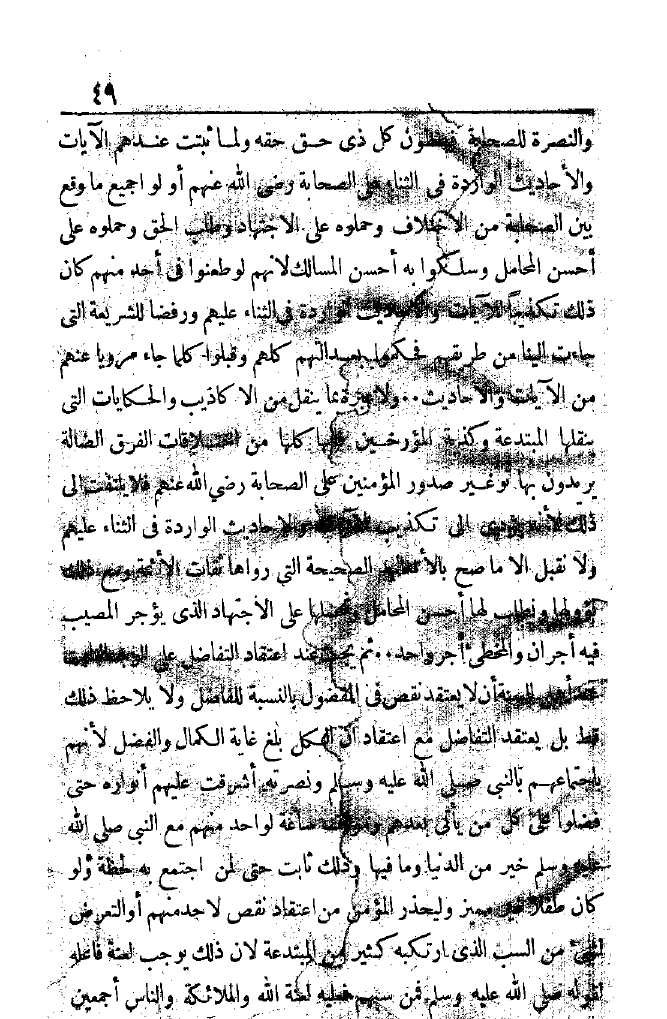 ٤٩
والنصرة للصحابة فيعطون كل ذى حق حقه ولما ثبتت عندهم الآيات
والأحاديث الواردة فى الثناء على الصحابة رضى الله عنهم أولوا جميع ماوقع
بين الصحابة من الاختلاف وحملوه على الاجتهاد وطلب الحق وحملوه على
أحسن المحامل وسلكوا به أحسن المسالك لأنهم لو طعنوا فى أحد منهم كان
ذلك تكذيبا للآيات والأحاديث الواردة فى الثناء عليهم ورفضا للشريعة التى
جاءت الينا من طريقهم فحكموا بعدالتهم كلهم وقبلوا كلما جاء مرويا عنهم
من الآيات والاحاديث.. ولا عبرة بما ينقل من الا كاذيب والحكايات التى
ينقلها المبتدعة وكذبة المؤرخين فانها كلها من اختلاقات الفرق الضالة
يريدون بها توغير صدور المؤمنين على الصحابة رضي الله عنهم فلا يلتفت الى
ذلك لأنه يؤدى الى تكذيب والاحاديث الواردة فى الثناء عليهم
ولا نقبل الا ما صح بالأسانيد الصحيحة التي رواها ثقات الأئمة ومع ذلك
نؤولها ونطلب لها أحسن المحامل ونحملها على الاجتهاد الذى يؤجر المصيب
فيه أجران والمخطئ أجر واحد.. ثم يجب عند اعتقاد التفاضل على
أن لا يعتقد نقص فى المفضول بالنسبة للفاضل ولا يلاحظ ذلك
قط بل يعتقد التفاضل مع اعتقاد ان الكل بلغ غاية الكمال والفضل لأنهم
باجتماعهم بالنبى صلى الله عليه وسلم ونصرته أشرقت عليهم أنواره حتى
فضلوا على كل من يأتى بعدهم ساعة لواحد منهم مع النبى صلى الله
عليه وسلم خير من الدنيا وما فيها وذلك ثابت حتى لمن اجتمع به لحظة ولو
كان طفلا غير مميز وليحذر المؤمن من اعتقاد نقص لاحد منهم أو التعرض
لشئ من السب الذى ارتكبه كثير من المبتدعة لان ذلك يوجب لعنة فاعله
لقوله صلى الله عليه وسلم فمن سبهم فعليه لعنة الله والملائكة والناس أجمعين